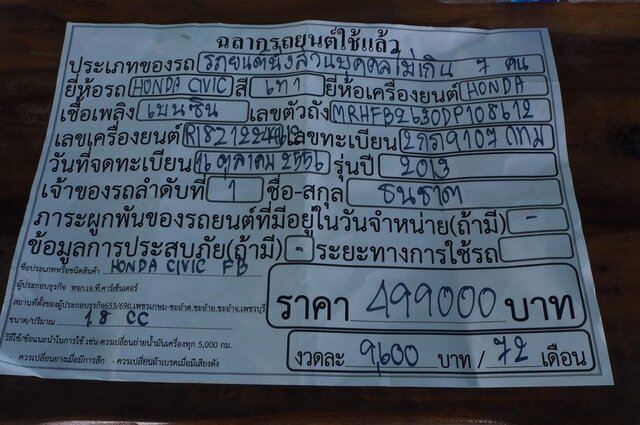 ฉลากรถยนต์ใช้แล้ว
ประเภทของรถ รถยนต์นั่งส่วนบุคคลไม่เกิน 7 คน
ยี่ห้อรถ HONDA CIVIC สี เทา ยี่ห้อเครื่องยนต์ HONDA
เชื้อเพลิง เบนซิน เลขตัวถัง MRHFB2630DP108612
เลขเครื่องยนต์ เลขทะเบียน กทม
วันที่จดทะเบียน 16 ตุลาคม 2556 รุ่นปี 2013
เจ้าของรถลำดับที่ 1 ชื่อ-สกุล ธนชาต
ภาระผูกพันของรถยนต์ที่มีอยู่ในวันจำหน่าย(ถ้ามี) -
ข้อมูลการประสบภัย(ถ้ามี) - ระยะทางการใช้รถ
ชื่อประเภทหรือชนิดสินค้า HONDA CIVIC FB
ผู้ประกอบธุรกิจ หจก.เจ.ที.คาร์เซ็นเตอร์
สถานที่ตั้งของผู้ประกอบธุรกิจ653/69ถ.เพชรเกษม-ชะอำต.ชะอำอ.ชะอำจ.เพชรบุรี
ขนาด/ปริมาณ 1.8 CC
วิธีใช้/ข้อแนะนำในการใช้ เช่น-ควรเปลี่ยนถ่ายน้ำมันเครื่องทุก 5,000 กม.
-ควรเปลี่ยนยางเมื่อมีการสึก -ควรเปลี่ยนผ้าเบรคเมื่อมีเสียงดัง
ราคา 499000 บาท
งวดละ 9,600 บาท / 72 เดือน